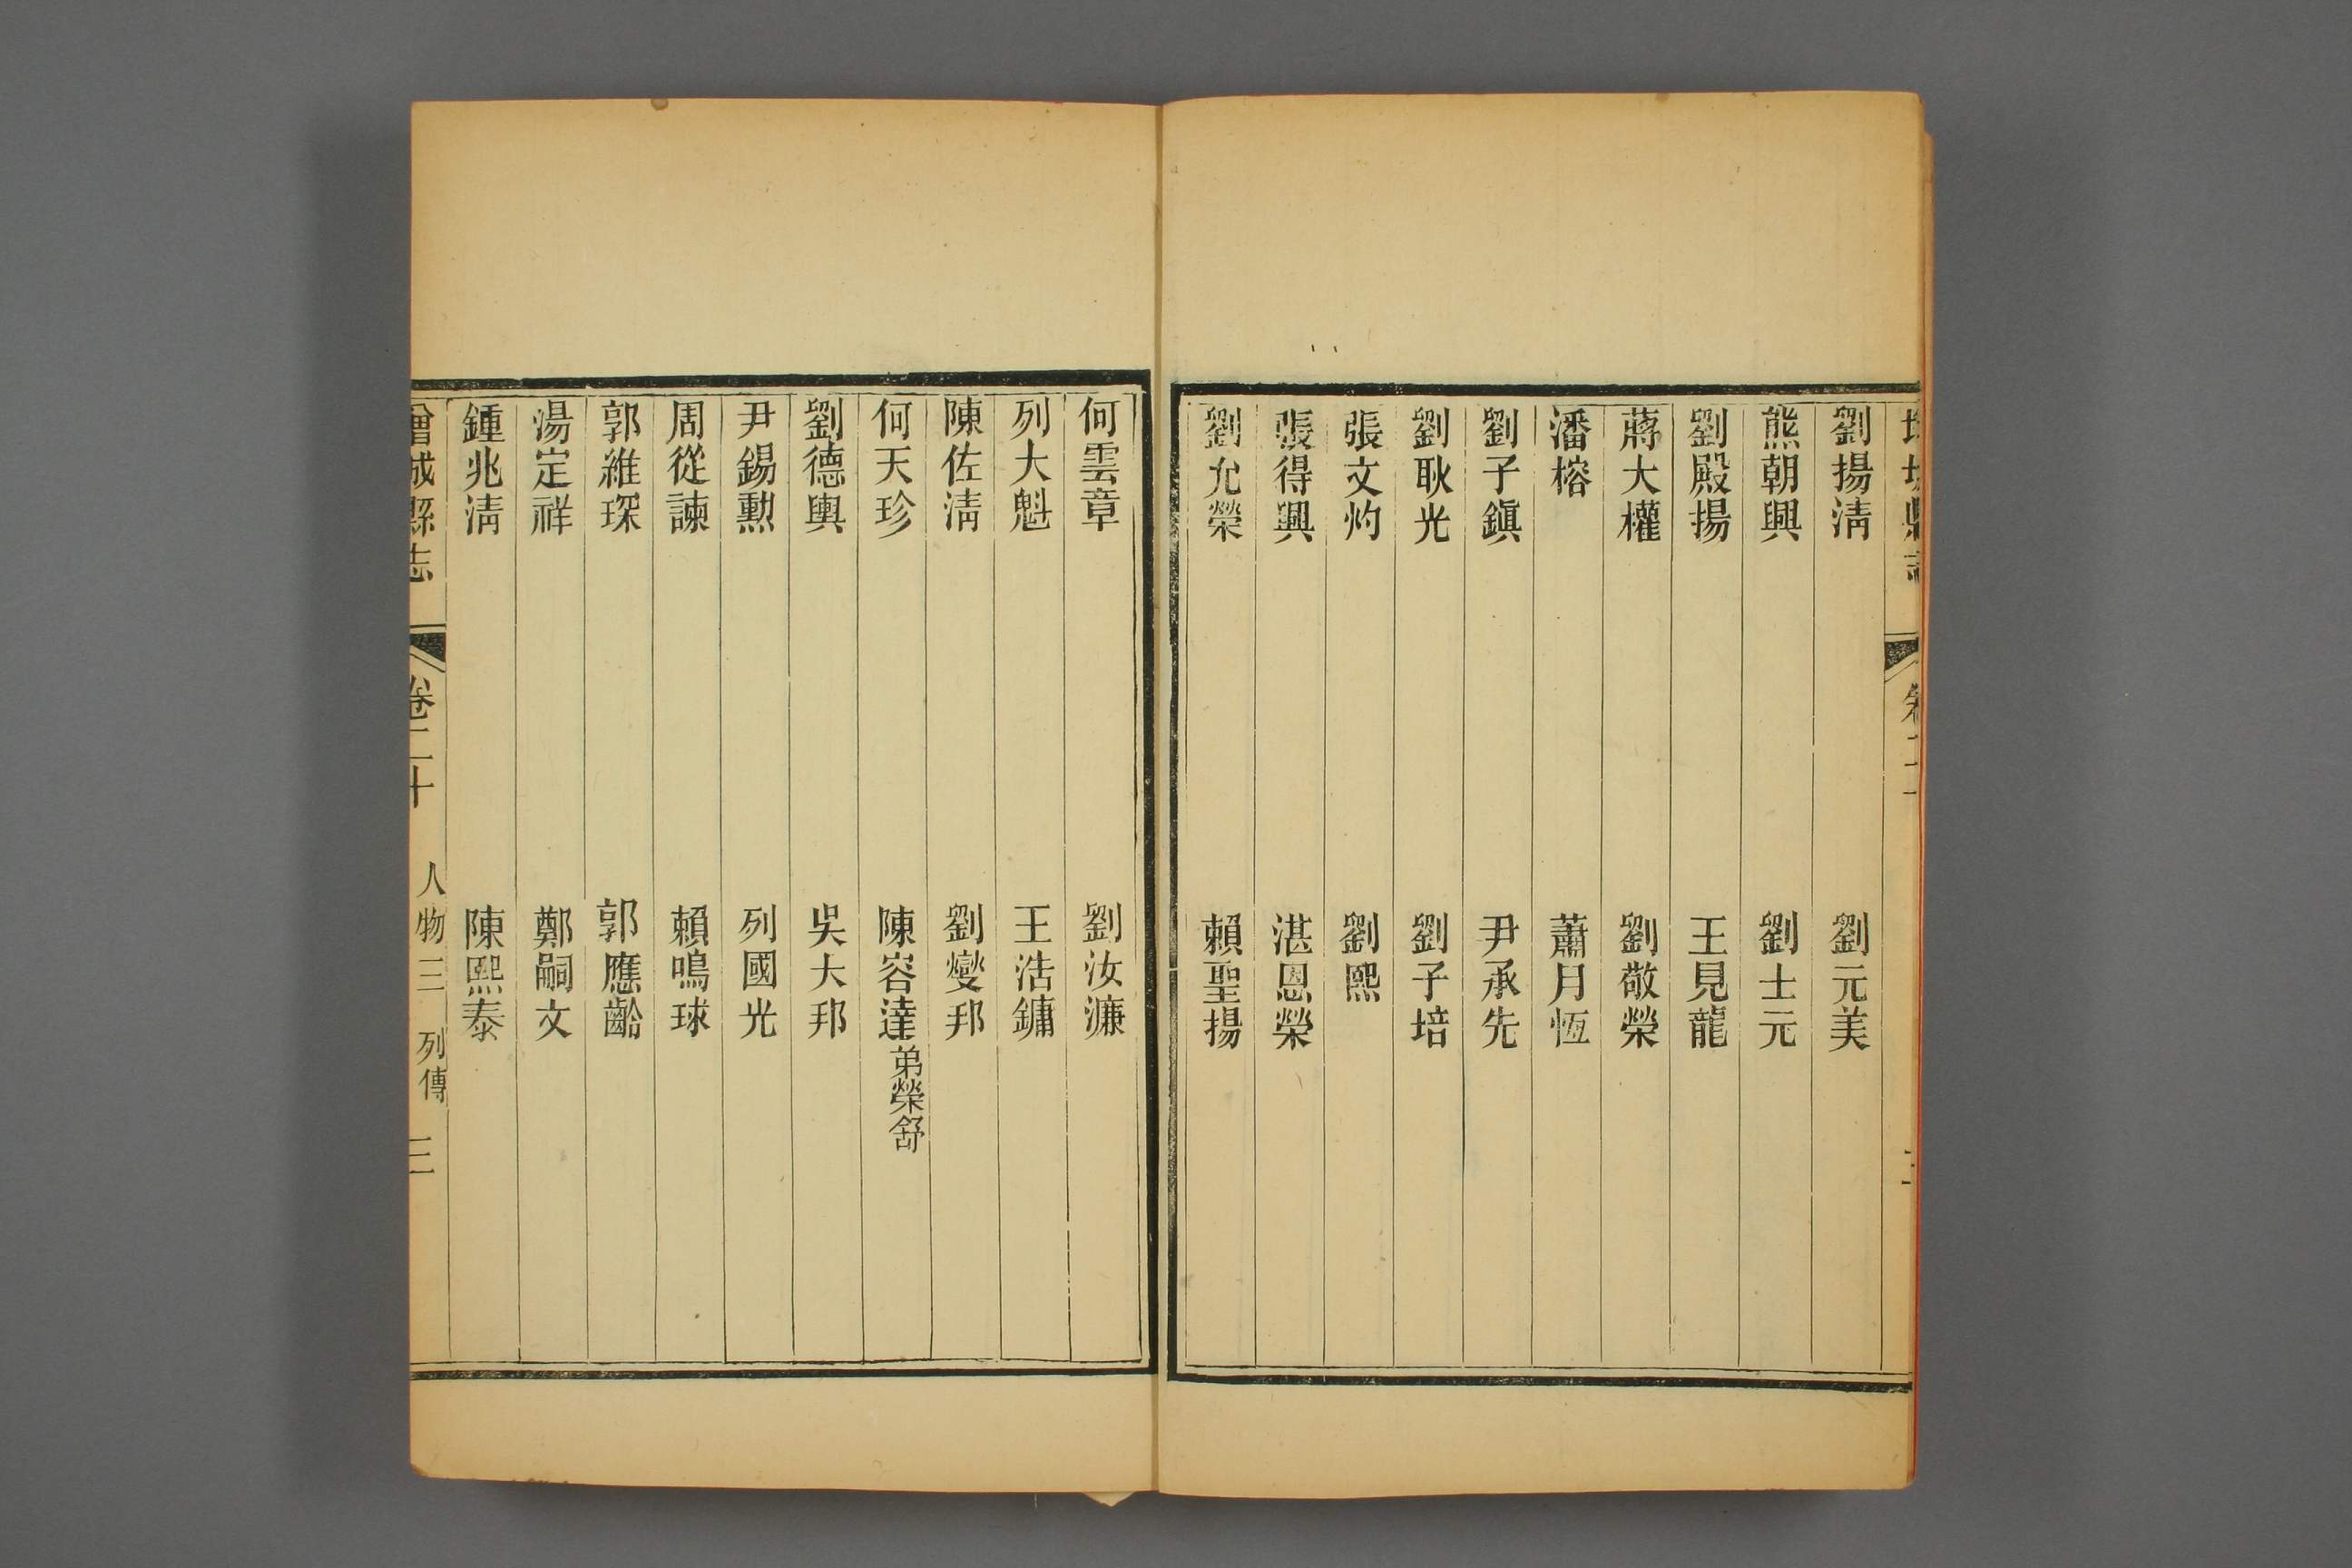 劉揚淸　劉元美
熊朝興　劉士元
劉殿揚　王見龍
蔣大權　劉敬榮
潘榕　蕭月恆
劉子鎭　尹承先
劉耿光　劉子培
張文灼　劉熙
張得興　湛恩榮
劉允榮　賴聖揚
何雲章　劉汝濂
列大魁　王浩鏞
陳佐淸　劉燮邦
何天珍　陳容達弟榮舒
劉德輿　吳大邦
尹錫勲　列國光
周從諫　賴鳴球
郭維琛　郭應齡
湯定祥　鄭嗣文
鍾兆淸　陳熙泰
增城縣志　卷二十　人物三　列傳　三